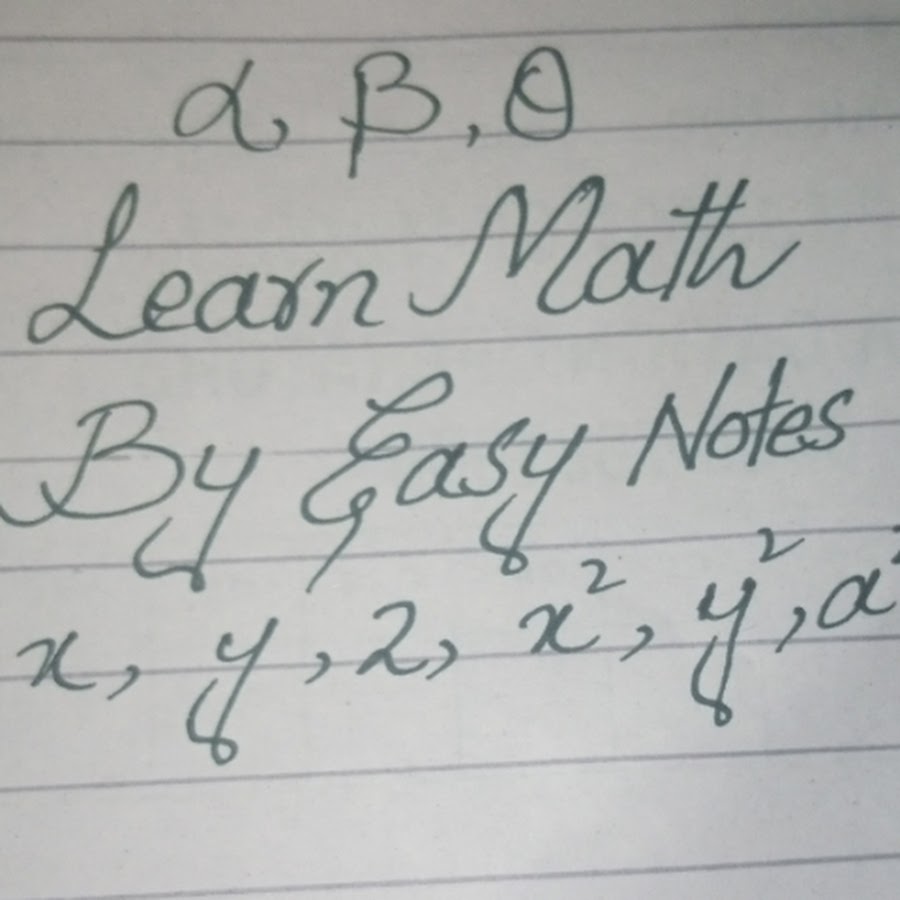 α, β, θ
Learn Math
By Easy Notes
x, y, 2, x², y², a²